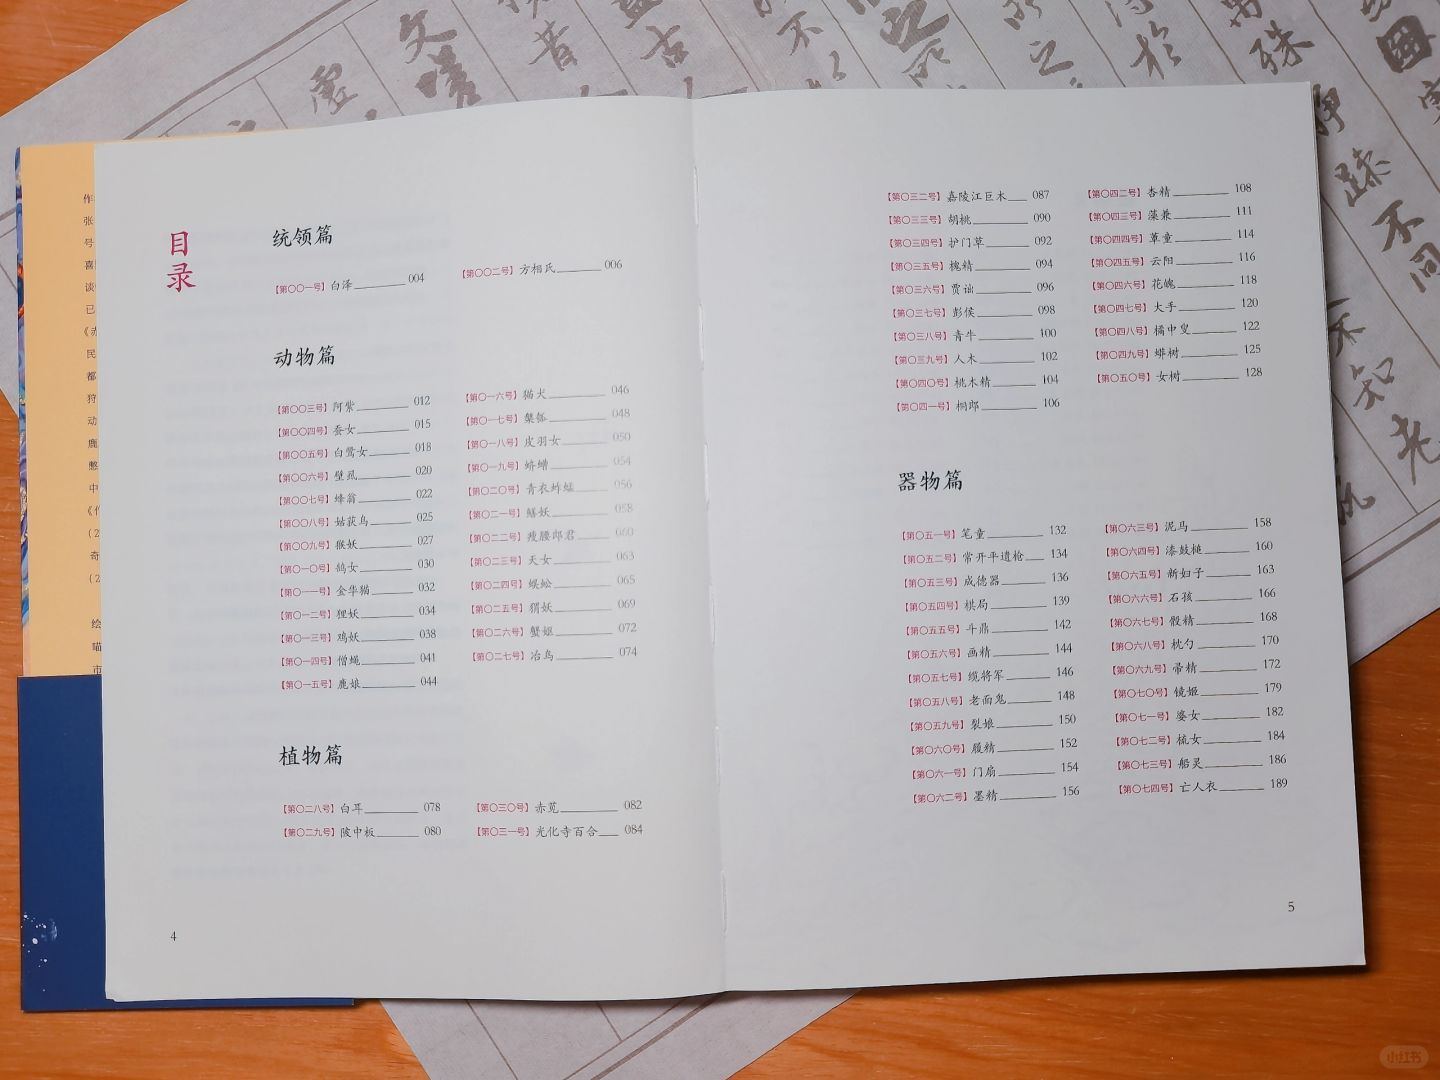 目录
统领篇
【第〇〇一号】白泽 004
【第〇〇二号】方相氏 006
动物篇
【第〇〇三号】阿紫 012
【第〇〇四号】蚕女 015
【第〇〇五号】白鹭女 018
【第〇〇六号】壁虱 020
【第〇〇七号】蜂翁 022
【第〇〇八号】姑获鸟 025
【第〇〇九号】猴妖 027
【第〇一〇号】鸽女 030
【第〇一一号】金华猫 032
【第〇一二号】狸妖 034
【第〇一三号】鸡妖 038
【第〇一四号】僧蝇 041
【第〇一五号】鹿娘 044
【第〇一六号】猫犬 046
【第〇一七号】 048
【第〇一八号】皮羽女 050
【第〇一九号】蛴螬 054
【第〇二〇号】青衣蚱蜢 056
【第〇二一号】鳝妖 058
【第〇二二号】瘦腰郎君 060
【第〇二三号】天女 063
【第〇二四号】蜈蚣 065
【第〇二五号】猬妖 069
【第〇二六号】蟹妪 072
【第〇二七号】冶鸟 074
植物篇
【第〇二八号】白耳 078
【第〇二九号】陂中板 080
【第〇三〇号】赤苋 082
【第〇三一号】光化寺百合 084
4
【第〇三二号】嘉陵江巨木 087
【第〇三三号】胡桃 090
【第〇三四号】护门草 092
【第〇三五号】槐精 094
【第〇三六号】贾诎 096
【第〇三七号】彭侯 098
【第〇三八号】青牛 100
【第〇三九号】人木 102
【第〇四〇号】桃木精 104
【第〇四一号】桐郎 106
【第〇四二号】杏精 108
【第〇四三号】藻兼 111
【第〇四四号】蕈童 114
【第〇四五号】云阳 116
【第〇四六号】花魄 118
【第〇四七号】大手 120
【第〇四八号】橘中叟 122
【第〇四九号】蟒树 125
【第〇五〇号】女树 128
器物篇
【第〇五一号】笔童 132
【第〇五二号】常开平遗枪 134
【第〇五三号】成德器 136
【第〇五四号】棋局 139
【第〇五五号】斗鼎 142
【第〇五六号】画精 144
【第〇五七号】缆将军 146
【第〇五八号】老面鬼 148
【第〇五九号】裂娘 150
【第〇六〇号】履精 152
【第〇六一号】门扇 154
【第〇六二号】墨精 156
【第〇六三号】泥马 158
【第〇六四号】漆鼓槌 160
【第〇六五号】新妇子 163
【第〇六六号】石孩 166
【第〇六七号】骰精 168
【第〇六八号】枕勺 170
【第〇六九号】帚精 172
【第〇七〇号】镜姬 179
【第〇七一号】婆女 182
【第〇七二号】梳女 184
【第〇七三号】船灵 186
【第〇七四号】亡人衣 189
5
小红书